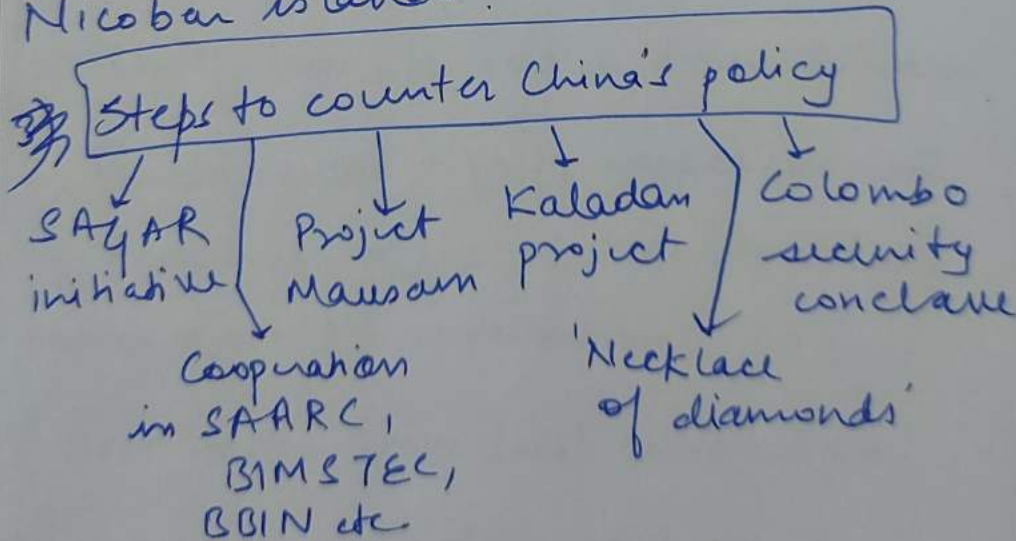 Nicobar
Steps to counter China's policy
SAGAR
initiative
Project
Mausam
Kaladan
project
Colombo
security
conclave
Cooperation
in SAARC,
BIMSTEC,
BBIN etc.
'Necklace
of diamonds'